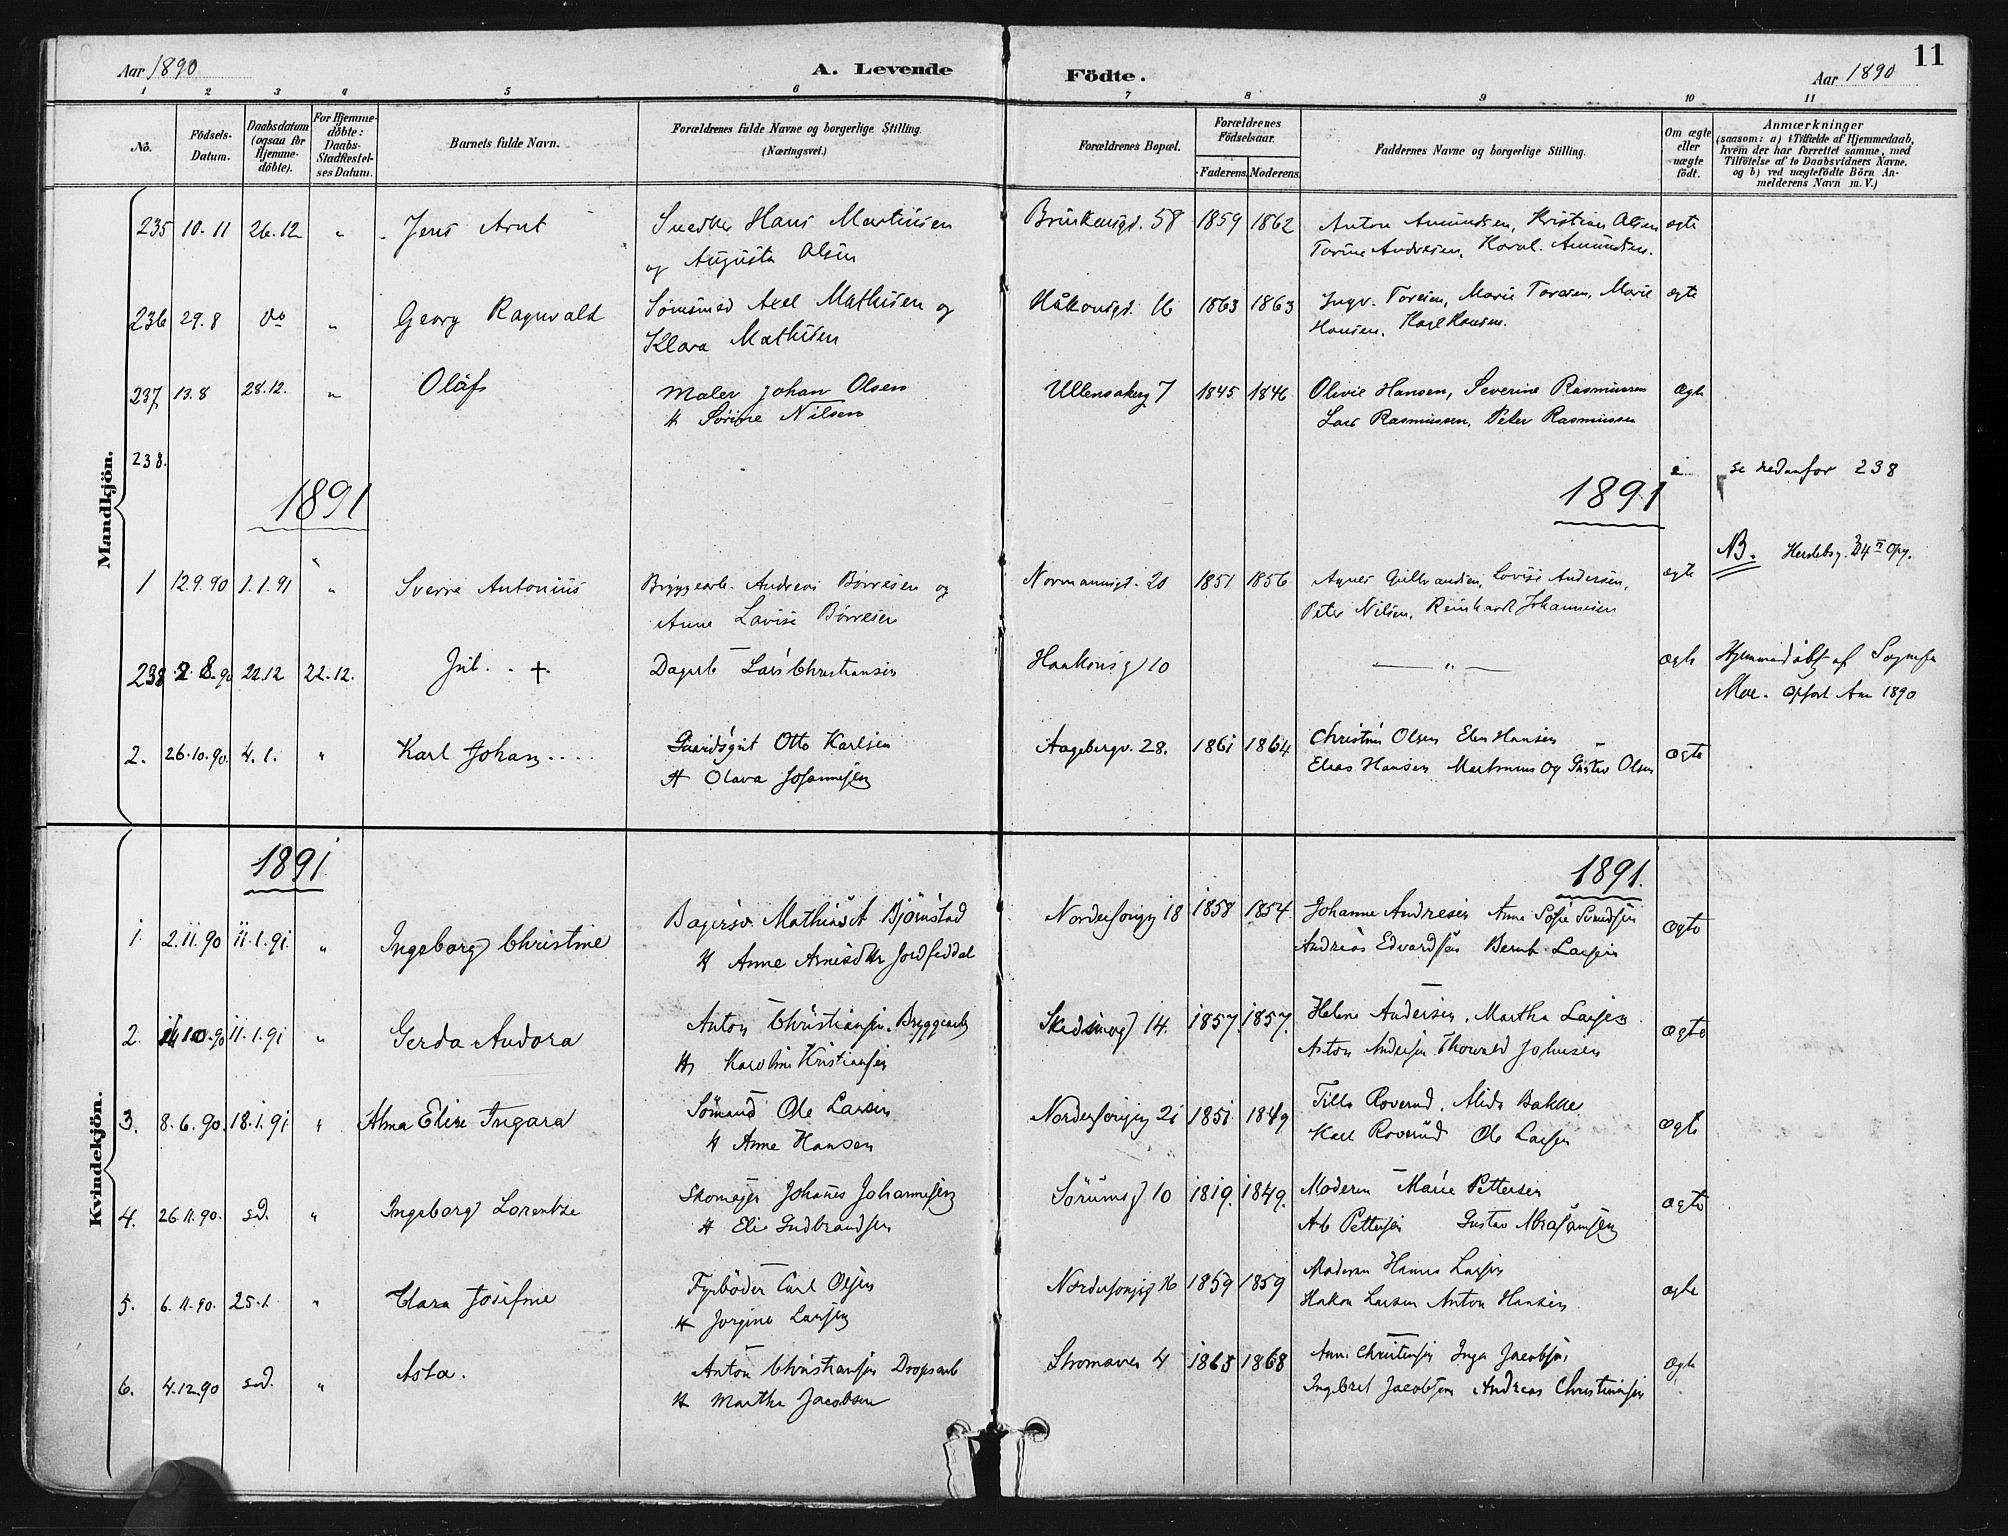 Aar 1890 A. Levende Födte. Aar 1890 11
1 2 3 4 5 6 7 8 9 10 11
No.
Födsels-Datum.
Daabsdatum (ogsaa for Hjemme-döbte).
For Hjemme-döbte: Daabs-Stadfæstel-ses Datum.
Barnets fulde Navn.
Forældrenes fulde Navne og borgerlige Stilling.
(Næringsvei.)
Forældrenes Bopæl.
Forældrenes Födselsaar.
Faderens. Moderens.
Faddernes Navne og borgerlige Stilling.
Om ægte eller uægte födt.
Anmærkninger
(saasom: a) i Tilfælde af Hjemmedaab, hvem der har forrettet samme, med Tilföielse af to Daabsvidners Navne. og b) ved uægtefödte Börn An-melderens Navn m. V.)
Mandkjön.
235 10.11 26.12 " Jens Arnt Snedker Hans Martinsen 58 1859 1862 Anton Amundsen, Kristian Olsen ægte
og Augusta Olsen Andresen, Amundsen.
236 29.8 do " Georg Ragnvald Axel Mathisen og Håkonsgd. 16 1863 1863 Ingv. Toresen, Marie Toresen, Marie ægte
Klara Mathisen Hansen, Karl Hansen.
237 13.8 28.12. " Olaf Maler Johan Olsen Ullensakerg 7 1845 1846 Olivie Hansen, Severine Rasmussen Ægte
Nilsen Lars Rasmussen, Peter Rasmussen
238. se nedanfor 238
1891 1891
NB. Herslebsg.
1 12.9.90 1.1.91 " Sverre Antonius Bryggearb. Andreas Børresen og Normannsgd. 20 1851 1856 Agnes Gulbrandsen, Lovise Andersen, ægte
Anne Lovise Børresen Peter Nilsen, Reinhardt Johannesen
238 2.8.90 22.12 22.12. + Dagarb Lars Christiansen Haakonsg 10 " ægte Hjemmedøbt af Sognepr
Moe. Opført Aar 1890
2. 26.10.90. 4.1. " Karl Johan.... Otto Karlsen Aagebergv. 28. 1861 1864 Christine Olsen Elen Hansen ægte
Olava Johannesen Elias Hansen og Gustav Olsen
Kvindekjön.
1891 1891.
1. 2.11.90 11.1.91 " Ingeborg Christine Bagersv. Mathias A Bjørnstad 18 1858 1854. Johanne Andresen Anna Sofie Svendsen ægte
Anne Andreas Edvardsen Bernt Larsen
2. 10.90 11.1.91 " Gerda Audora Anton Christiansen. Bryggearb Skedsmog 14. 1857. 1857. Helene Andersen, Martha Larsen ægte
Karoline Kristiansen Anton Andersen Thorvald Johnsen
3. 8.6.90. 18.1.91 " Alma Elise Ingara Sömand Ole Larsen 21 1851. 1849 Roverud, Bakke ægte
Anne Hansen Karl Roverud Ole Larsen
4. 26.11.90. sd. " Ingeborg Lorentze Skomager Johanes Johannesen Sørumsg 10 1819. 1849. Moderen Marie Pettersen ægte
Elie Gudbrandsen Pettersen Gustav Abrahamsen
5. 6.11.90. 25.1. " Clara Josefine Fyrbøder Carl Olsen 16 1859 1859 Moderen Hanna Larsen ægte
Jorgine Larsen Hakon Larsen Anton Hansen
6. 4.12.90 sd. " Asta. Anton Christiansen Strømsvei 4 1865 1868 Christensen Inga Jacobsen ægte
Martha Jacobsen Ingebret Jacobsen Andreas Christiansen